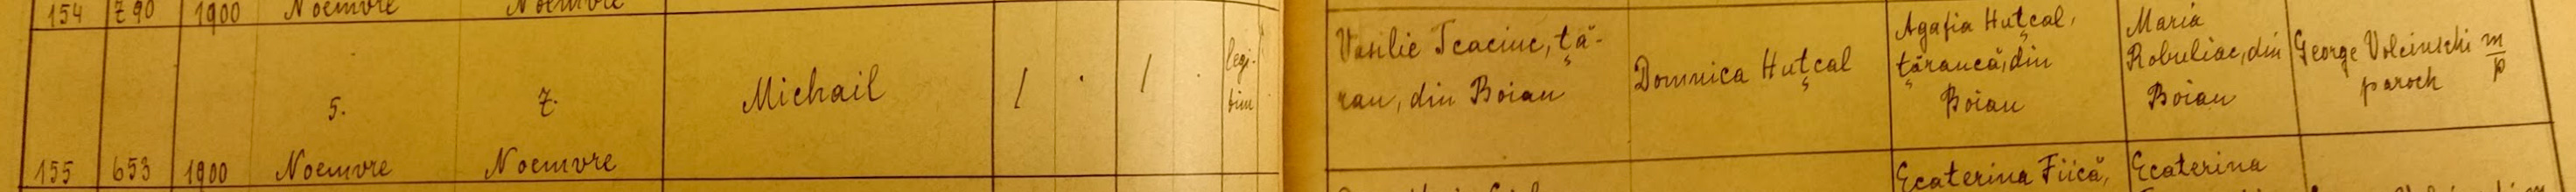 154 790 1900 Noemvre Noemvre
5. 7. Michail / · / · legi-
tim
155 653 1900 Noemvre Noemvre
Vasilie Tcaciuc, ță-
ran, din Boian
Domnica Huțcal
Agafia Huțcal,
țărancă, din
Boian
Maria
Robuliac, din
Boian
George Volcinschi m/p
paroch
Ecaterina Fiică,
Ecaterina